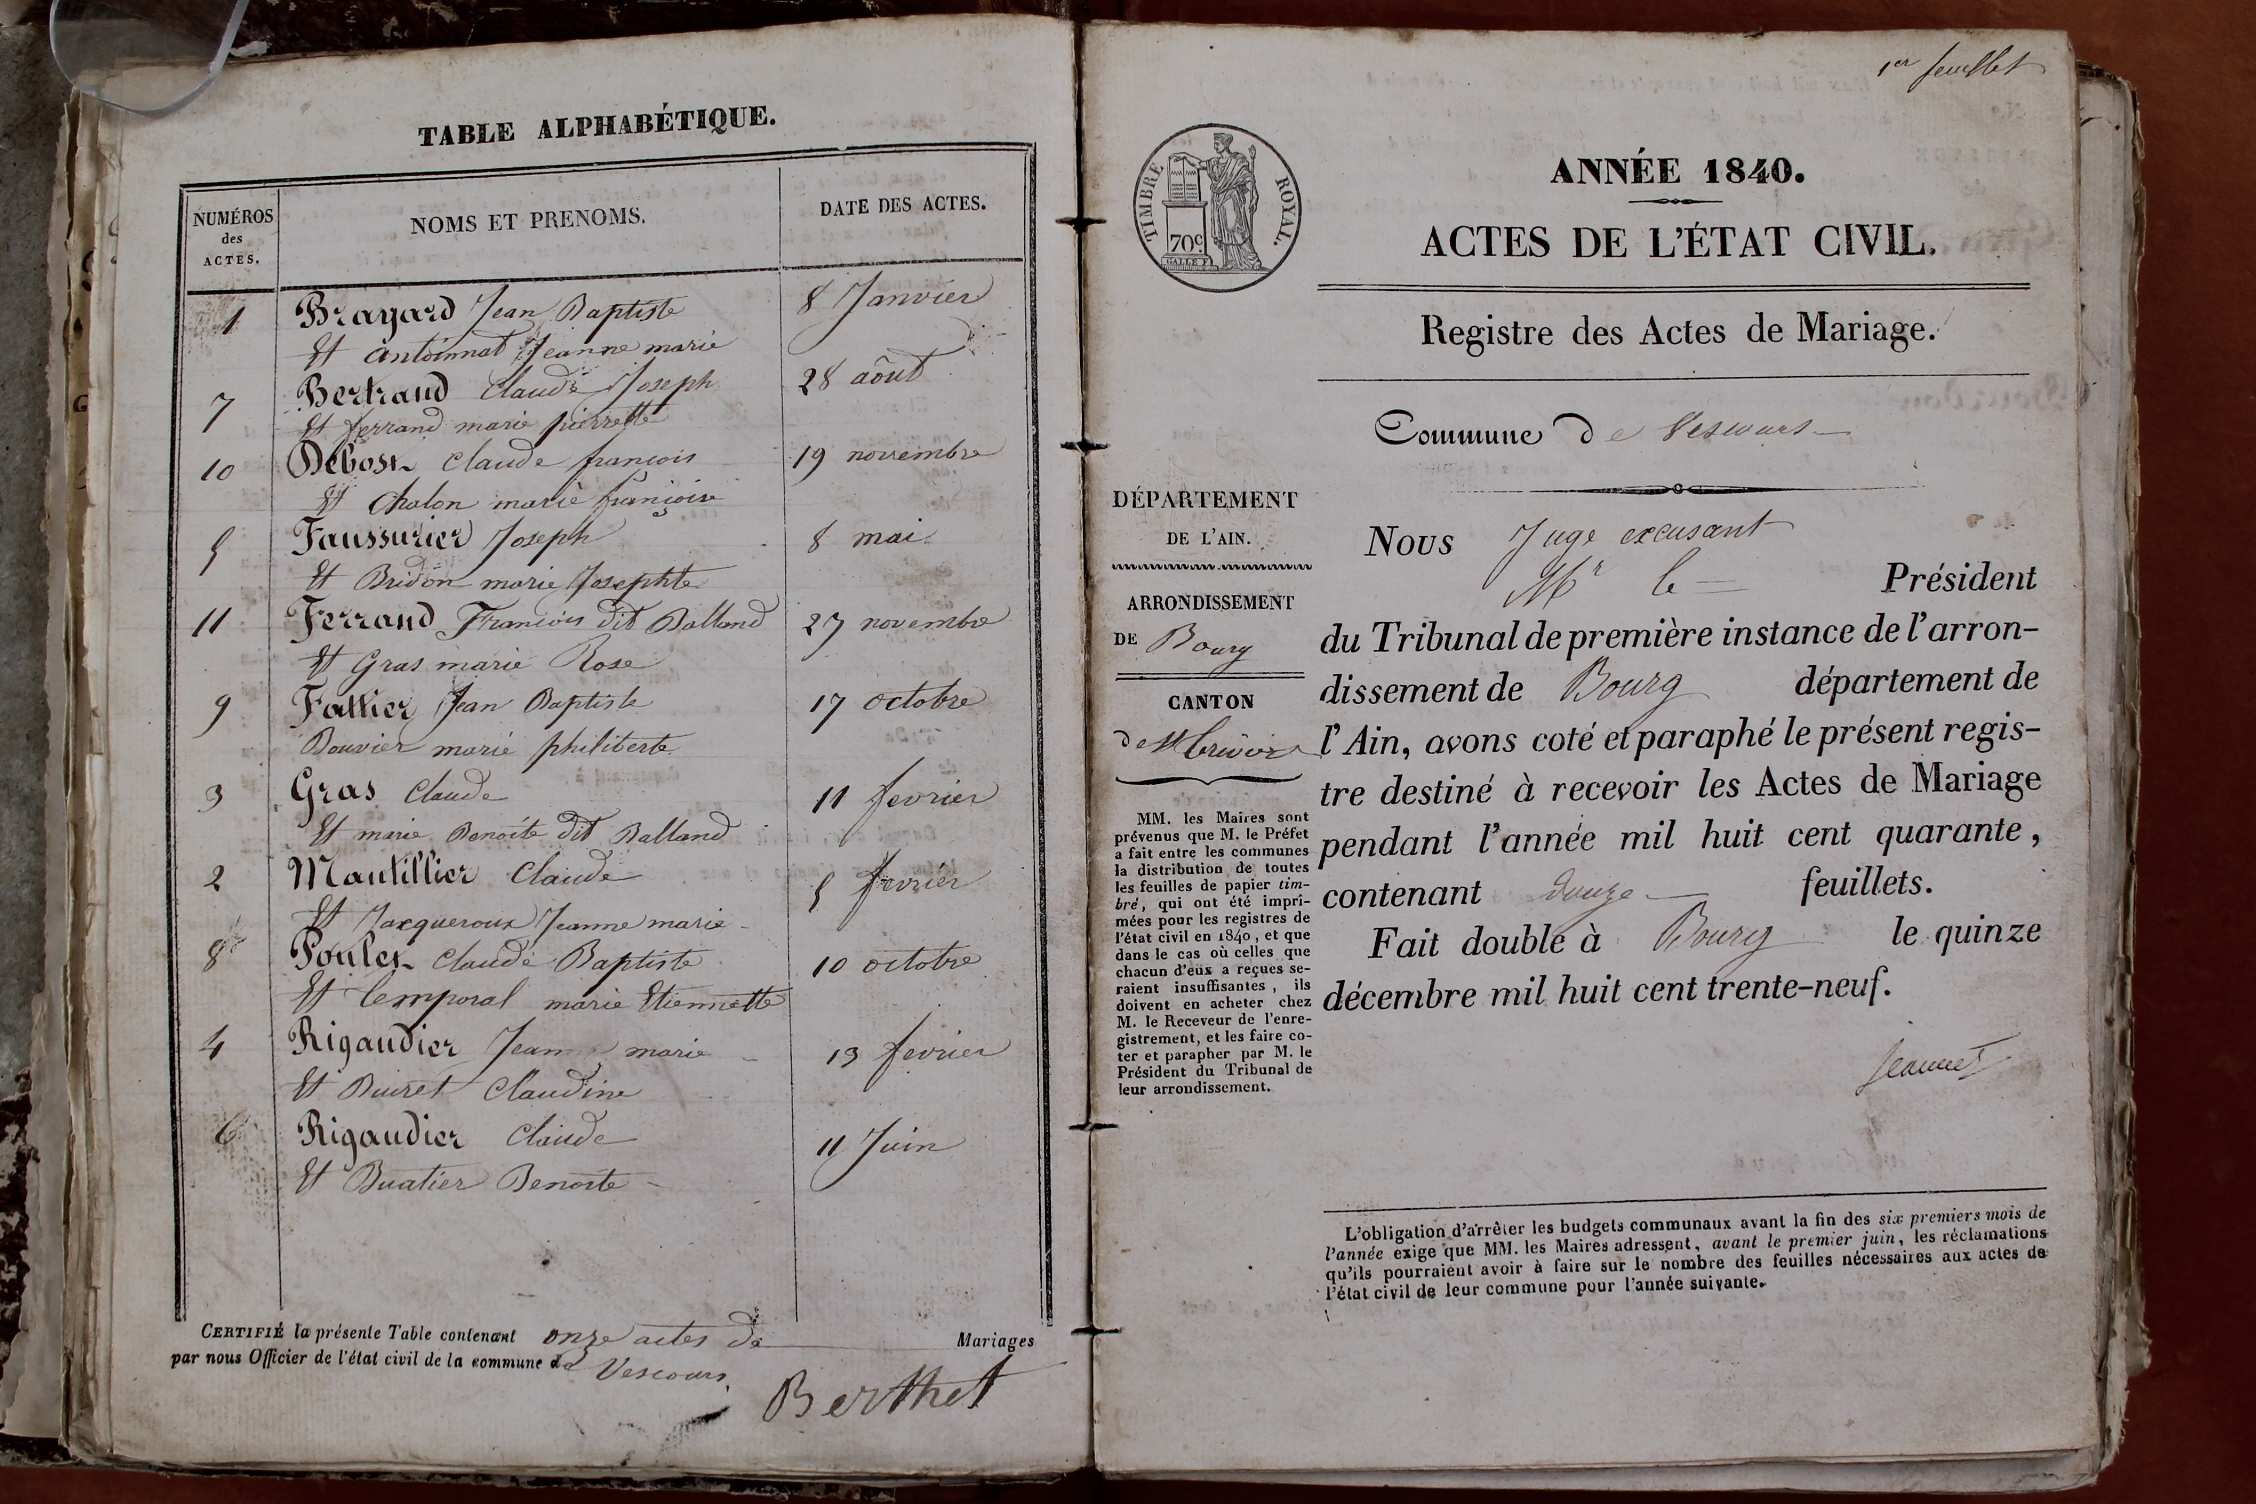 TABLE ALPHABÉTIQUE.
NUMÉROS des ACTES.
NOMS ET PRENOMS.
DATE DES ACTES.
1 Brayard Jean Baptiste 8 Janvier
Et antoinnat Jeanne marie
7 Bertrand Claude Joseph 28 aôut
Et ferrand marie pierrette
10 Debost Claude françois 19 novembre
Et Chalon marie françoise
5 Faussurier Joseph 8 mai
Et Bridon marie Josephte
11 Ferrand François dit Balland 27 novembre
Et Gras marie Rose
9 Fattier Jean Baptiste 17 octobre
Bouvier marie philiberte
3 Gras Claude 11 fevrier
Et marie Benoite dit Balland
2 Mantillier Claude 5 fevrier
Et Jacqueroux Jeanne marie
8 Poulet Claude Baptiste 10 octobre
Et Temporal marie Etiennette
4 Rigaudier Jean marie 13 fevrier
Et Buiret Claudine
6 Rigaudier Claude 11 Juin
Et Buatier Benoite
CERTIFIÉ la présente Table contenant onze actes de Mariages
par nous Officier de l'état civil de la commune de Vescours
Berthet
1er feuillet
TIMBRE ROYAL.
70c.
ANNÉE 1840.
ACTES DE L'ÉTAT CIVIL.
Registre des Actes de Mariage.
Commune De Vescours
DÉPARTEMENT
DE L'AIN.
ARRONDISSEMENT
DE Bourg
CANTON
de St Trivier
MM. les Maires sont
prévenus que M. le Préfet
a fait entre les communes
la distribution de toutes
les feuilles de papier tim-
bré, qui ont été impri-
mées pour les registres de
l'état civil en 1840, et que
dans le cas où celles que
chacun d'eux a reçues se-
raient insuffisantes, ils
doivent en acheter chez
M. le Receveur de l'enre-
gistrement, et les faire co-
ter et parapher par M. le
Président du Tribunal de
leur arrondissement.
Nous Juge excusant
Mr le Président
du Tribunal de première instance de l'arron-
dissement de Bourg département de
l'Ain, avons coté et paraphé le présent regis-
tre destiné à recevoir les Actes de Mariage
pendant l'année mil huit cent quarante,
contenant douze feuillets.
Fait double à Bourg le quinze
décembre mil huit cent trente-neuf.
Jeannet
L'obligation d'arrêter les budgets communaux avant la fin des six premiers mois de
l'année exige que MM. les Maires adressent, avant le premier juin, les réclamations
qu'ils pourraient avoir à faire sur le nombre des feuilles nécessaires aux actes de
l'état civil de leur commune pour l'année suivante.